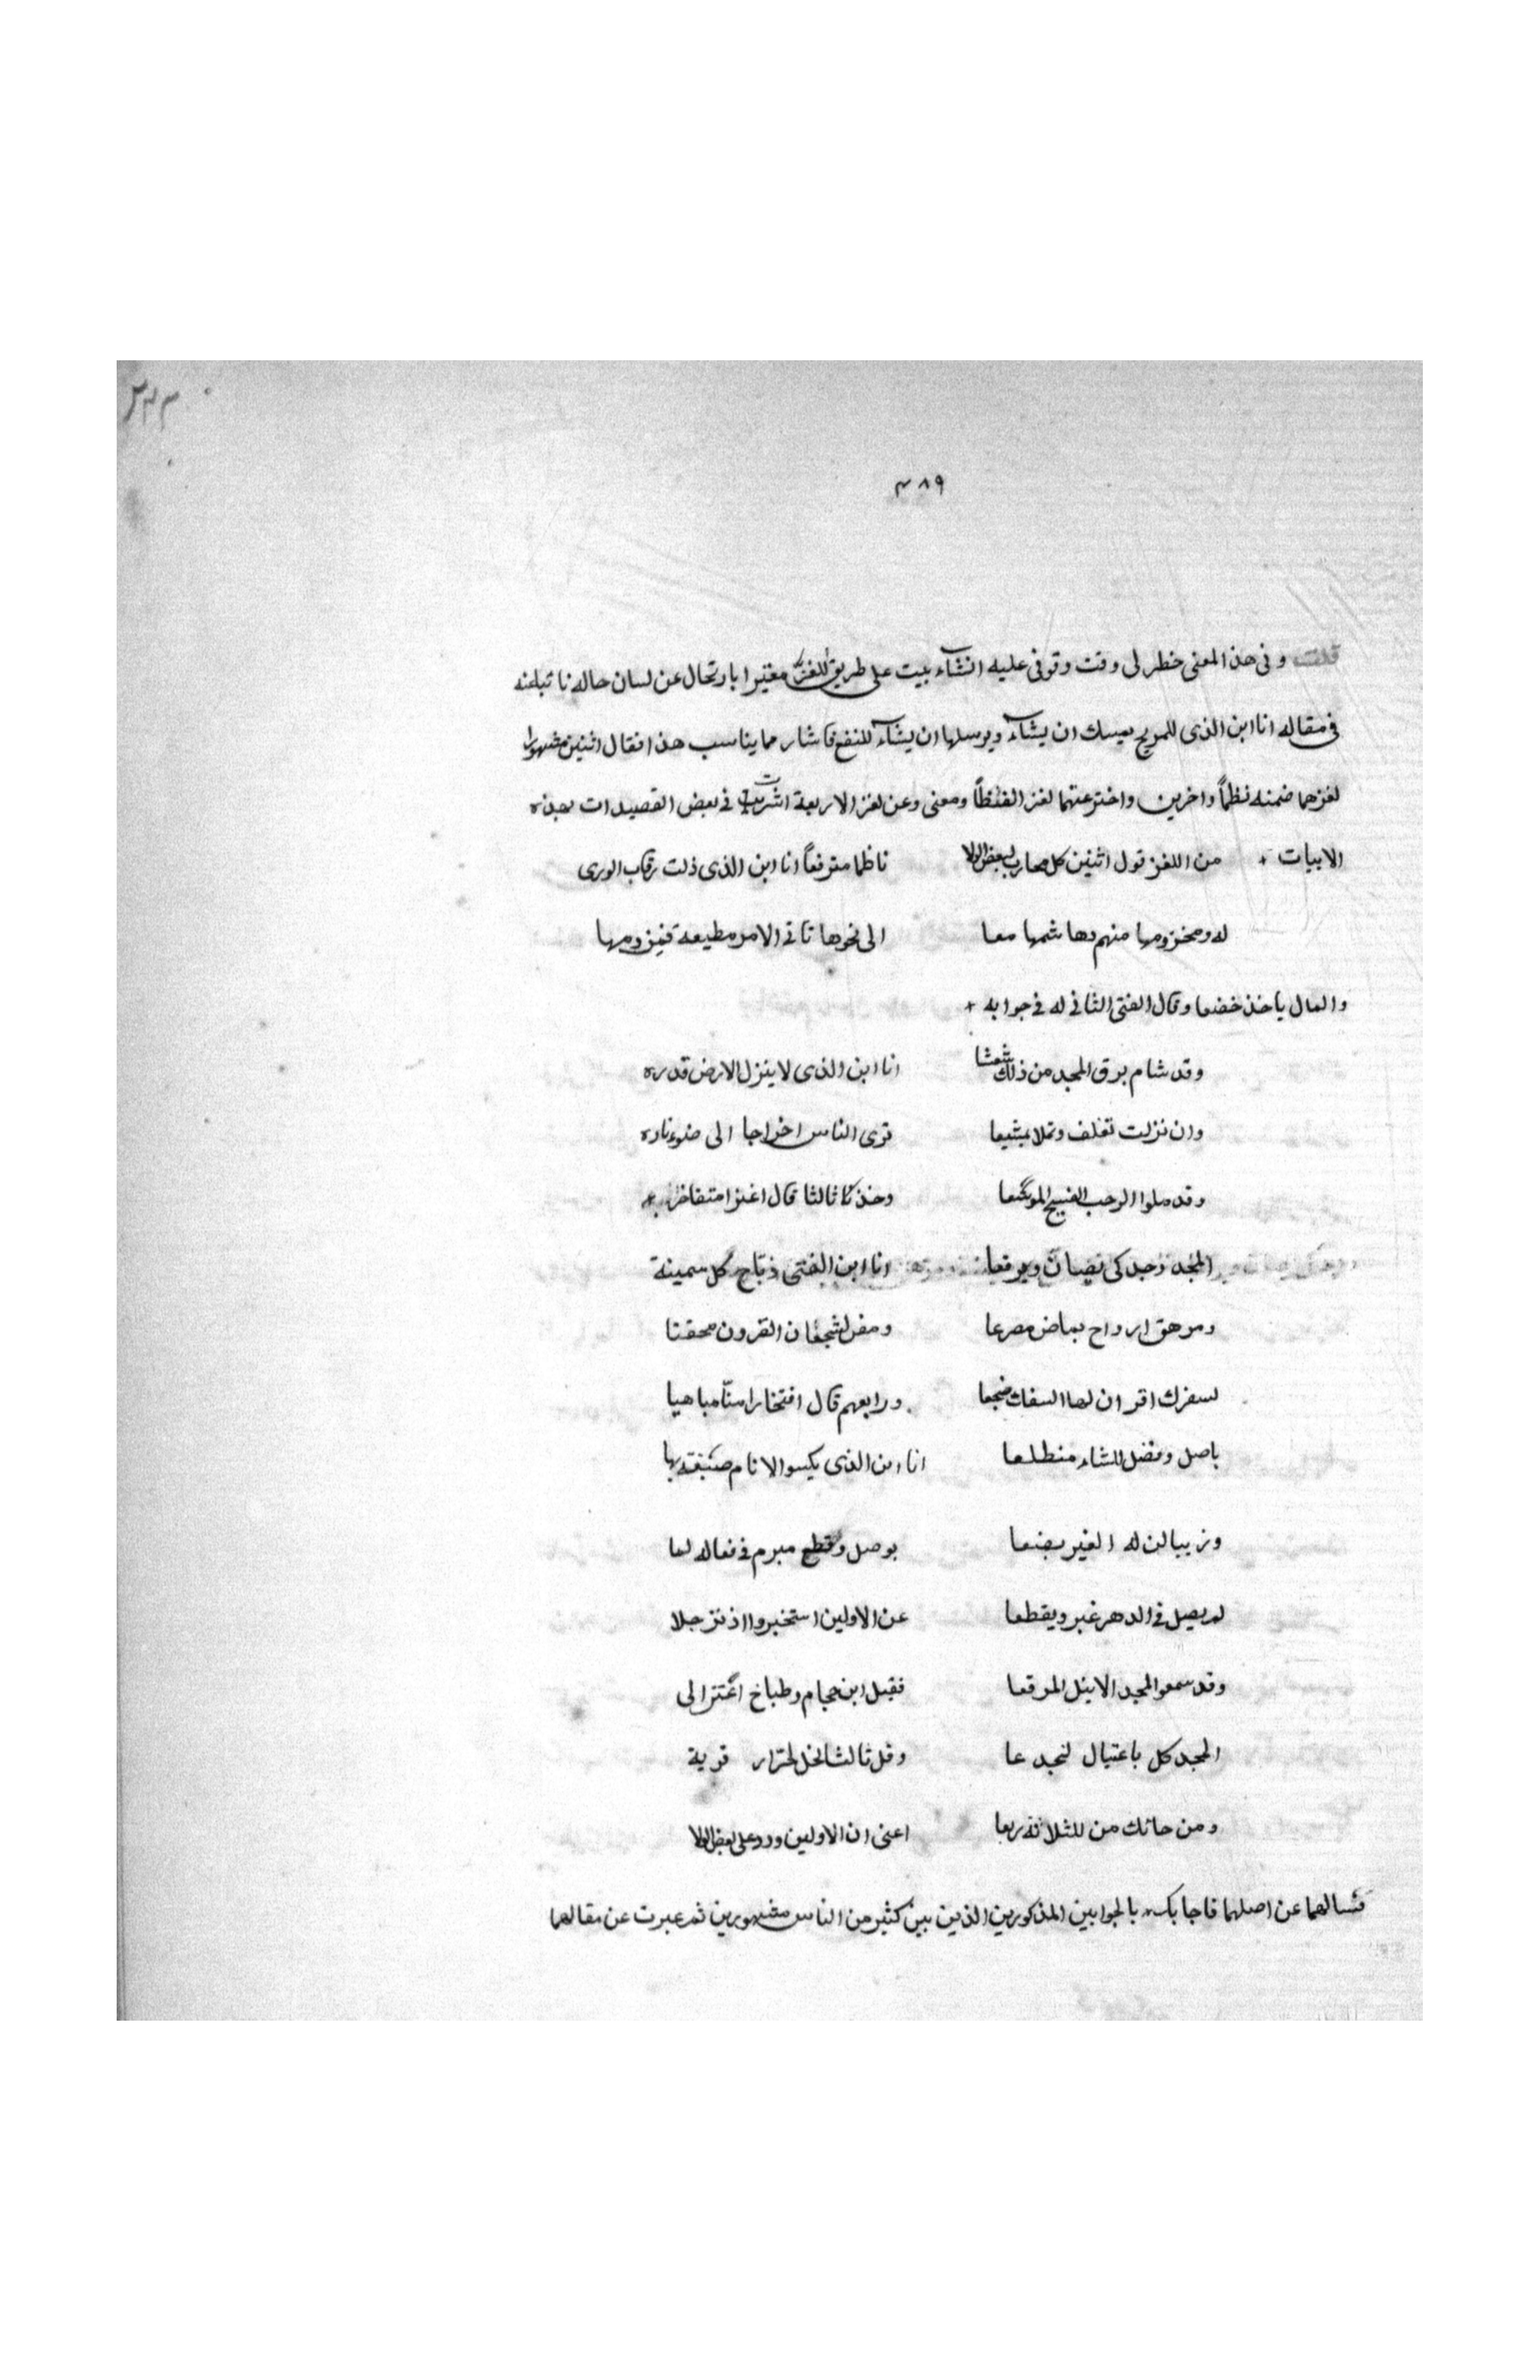 ٣٨٩
قلت وفى هذا المعنى خطر لى وقت وقوفى عليه انشاء بيت على طريق اللغز مغتيرا بارتحال عن لسان حاله نا تباعنه
فى مقاله انا ابن الذى للمريح يمسك ان يشاء ويرسلها ان يشاء للنفع فاشار مما يناسب هذا فقال اثنين مشهورا
لغزهما ضمنه نظماً واخرين واخترعتهما لغز الفظاً ومعنى وعن لغز الاربعة اشرت فى بعض القصيدات بهذه
الابيات + من اللغز قول اثنين كل محارب لبعض الولا ناظما مترفعاً انا ابن الذى ذلت رقاب الورى
له ومخزومها منهم وهاشمها معا الى نحوها تاتى الامر مطيعة فيزومها
والمال ياخذ خضعا وقال الفتى الثانى له فى جوابه +
وقد شام برق المجد من ذلك شعشا انا ابن الذى لا ينزل الارض قدره
وان نزلت تغلف وتملا بشيعا ترى الناس اخراجا الى ضوء ناره
وقد ملوا الرحب الفسيح الموسعا وخذ ثالثا قال اغزا متفاخرا +
المجد وجد كى تصان ويرفعا انا ابن الفتى ذباح كل سمينة
ومرهق ارواح بماض مصرعا ومفن لشجعان القرون محقتا
لسفرك اقران لها السفات ضجعا ورابعهم قال افتخارا سنا مباهيا
باصل وفضل للشاء منطلعا انا ابن الذى يكسو الانام صنيعة بها
وزيبا لن له الغير يضعا بوصل وقطع مبرم فى فعاله لها
لم يصل فى الدهر غير ويقطعا عن الاولين استخبروا اذ ترجلا
وقد سمعوا المجد الاينل المرقعا فقيل ابن حجام وطباخ اغتزا لى
المجد كل باعتيال لنجدعا وقل ثالثا نجل لجزار قرية
ومن حائك من للثلاثة ربعا اعنى ان الاولين ورد على بعض الولا
فسالهما عن اصلهما فاجابك بالجوابين المذكورين الذين بين كثير من الناس مشهورين ثم عبرت عن مقالهما